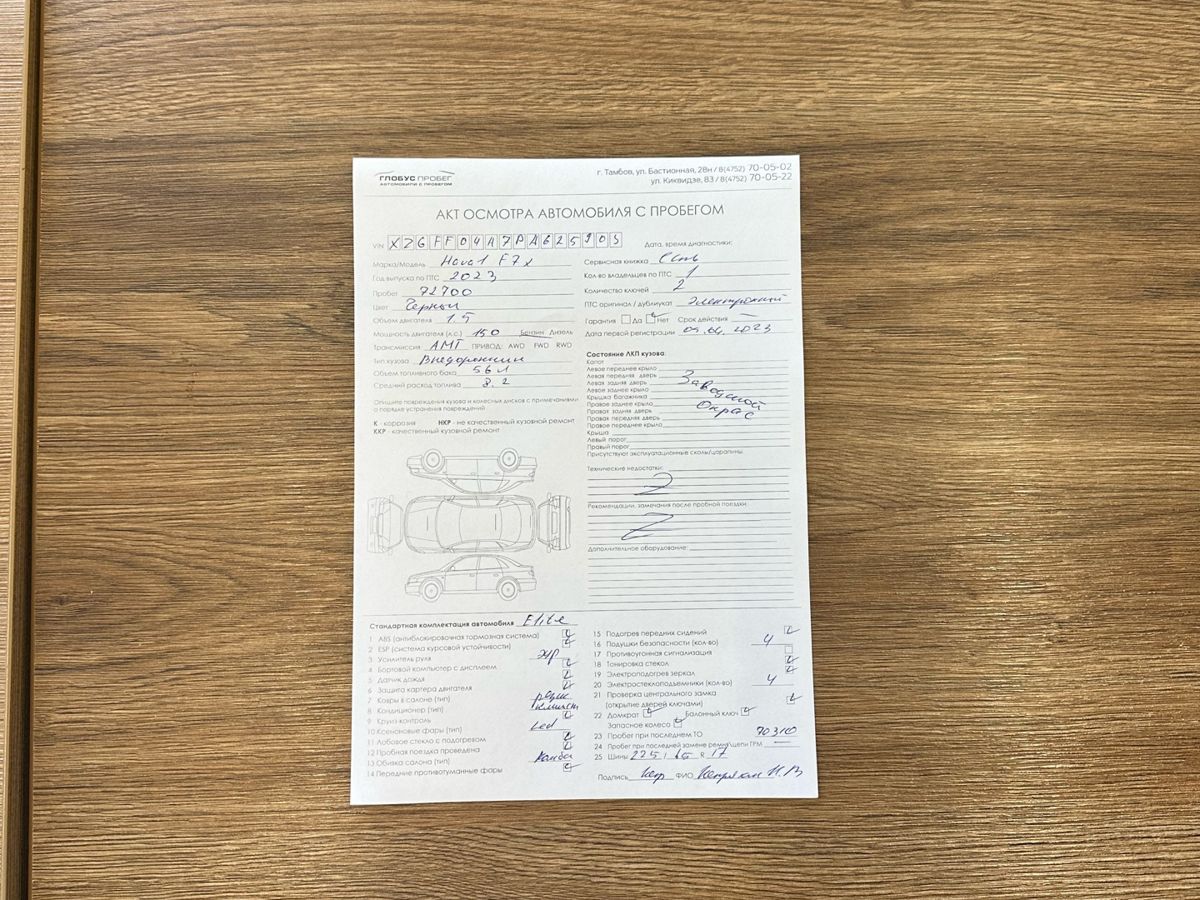 ГЛОБУС ПРОБЕГ
АВТОМОБИЛИ С ПРОБЕГОМ
г. Тамбов, ул. Бастионная, 28н / 8(4752) 70-05-02
ул. Киквидзе, 83 / 8(4752) 70-05-22
АКТ ОСМОТРА АВТОМОБИЛЯ С ПРОБЕГОМ
VIN
Дата, время диагностики:
Марка/Модель Haval F7x
Год выпуска по ПТС 2023
Пробег 72700
Цвет Черный
Объем двигателя 1.5
Мощность двигателя (л.с.) 150 Бензин Дизель
Трансмиссия АМТ ПРИВОД: AWD FWD RWD
Тип кузова Внедорожник
Объем топливного бака 56 л
Средний расход топлива 8.2
Опишите повреждения кузова и колесных дисков с примечаниями
о порядке устранения повреждений
К - коррозия НКР - не качественный кузовной ремонт
ККР - качественный кузовной ремонт
Сервисная книжка Есть
Кол-во владельцев по ПТС 1
Количество ключей 2
ПТС оригинал / дубликат Электронный
Гарантия Да Нет Срок действия —
Дата первой регистрации 09.06.2023
Состояние ЛКП кузова:
Капот
Левое переднее крыло
Левая передняя дверь
Левая задняя дверь
Левое заднее крыло
Крышка багажника
Правое заднее крыло
Правая задняя дверь
Правая передняя дверь
Правое переднее крыло
Крыша
Левый порог
Правый порог
Заводской
Окрас
Присутствуют эксплуатационные сколы/царапины.
Технические недостатки:
Рекомендации, замечания после пробной поездки
Дополнительное оборудование:
Стандартная комплектация автомобиля Elite
1 ABS (антиблокировочная тормозная система)
2 ESP (система курсовой устойчивости)
3 Усилитель руля эур
4 Бортовой компьютер с дисплеем
5 Датчик дождя
6 Защита картера двигателя
7 Ковры в салоне (тип) резин
8 Кондиционер (тип) климат
9 Круиз-контроль
10 Ксеноновые фары (тип) Led
11 Лобовое стекло с подогревом
12 Пробная поездка проведена
13 Обивка салона (тип) Комби
14 Передние противотуманные фары
15 Подогрев передних сидений
16 Подушки безопасности (кол-во) 4
17 Противоугонная сигнализация
18 Тонировка стекол
19 Электроподогрев зеркал
20 Электростеклоподъемники (кол-во) 4
21 Проверка центрального замка
(открытие дверей ключами)
22 Домкрат Балонный ключ
Запасное колесо
23 Пробег при последнем ТО 70310
24 Пробег при последней замене ремня/цепи ГРМ —
25 Шины 225 / 65 R 17
Подпись ФИО